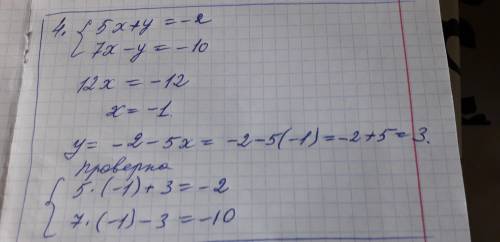 4. { 5x+y = -2
7x-y = -10
12x = -12
x = -1.
y = -2-5x = -2-5(-1) = -2+5 = 3.
Проверка
{ 5·(-1)+3 = -2
7·(-1)-3 = -10